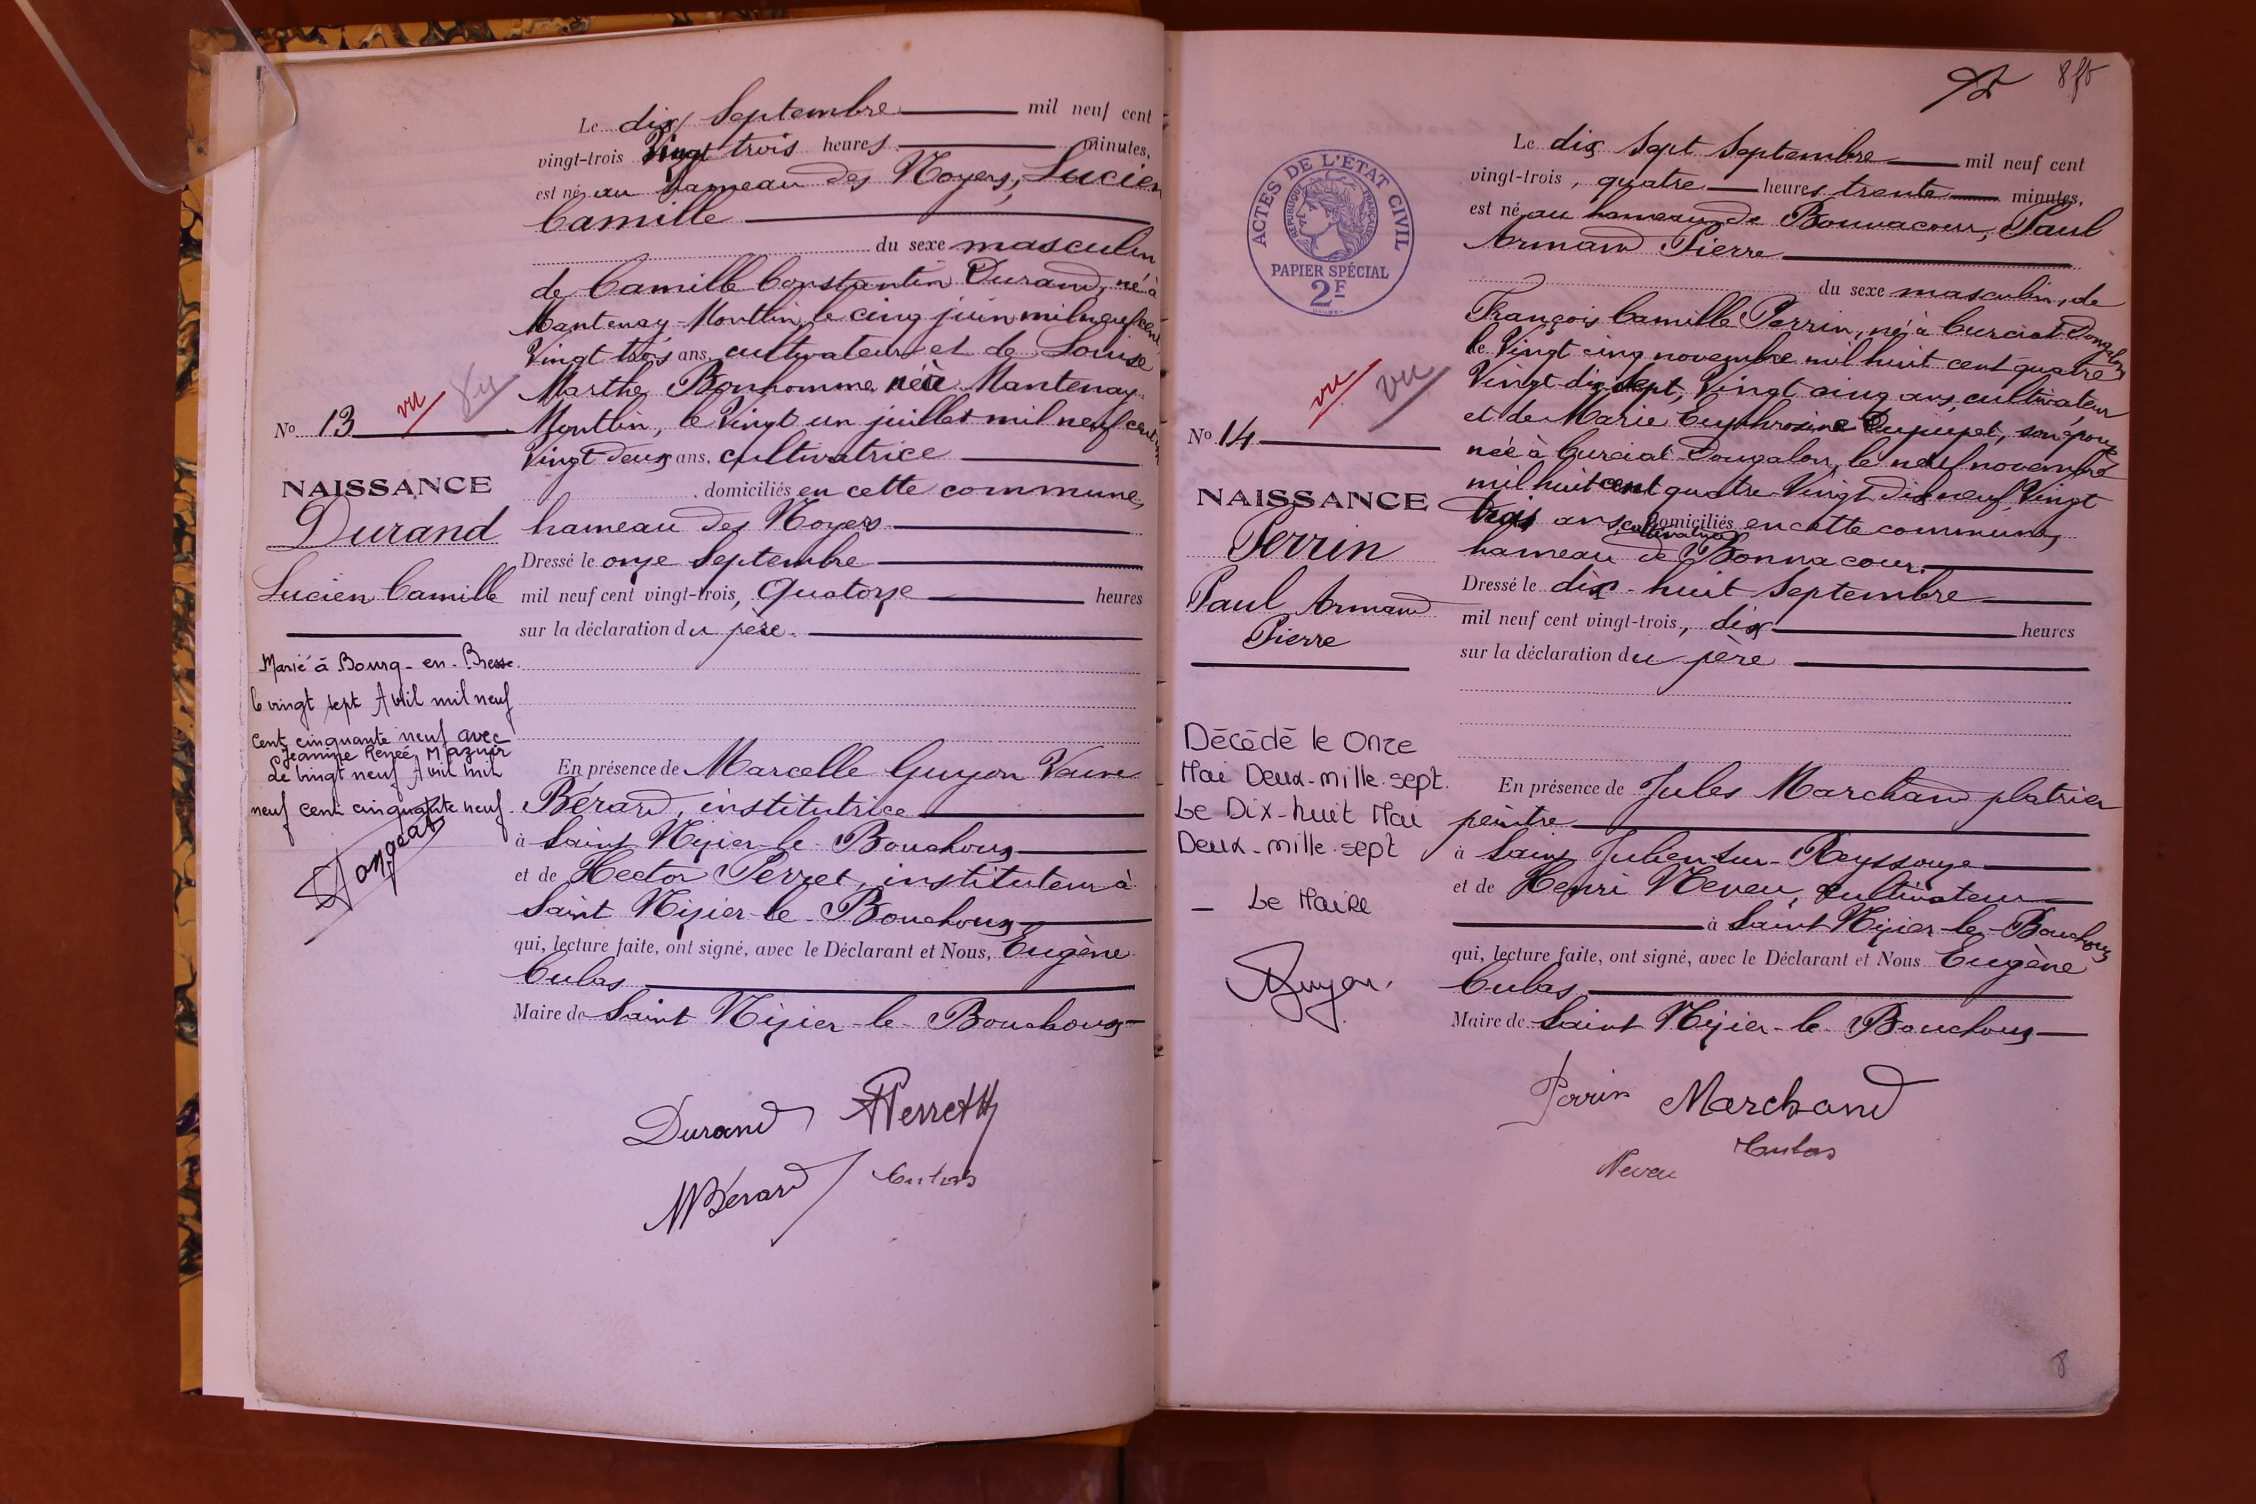 Le dix Septembre mil neuf cent
vingt-trois Vingt trois heures minutes,
est né au hameau des Noyers, Lucien
Camille
du sexe masculin
de Camille Constantin Durand, né à
Mantenay-Montlin, le cinq juin mil neuf cent,
Vingt trois ans, cultivateur et de Louise
Marthe Bonhomme née à Mantenay-
Montlin, le Vingt un juillet mil neuf cent un
Vingt deux ans, cultivatrice
domiciliés en cette commune,
hameau des Noyers
Dressé le onze Septembre
mil neuf cent vingt-trois, Quatorze heures
sur la déclaration du père.
En présence de Marcelle Guyon Veuve
Bérard, institutrice
à Saint Nizier-le-Bouchoux
et de Hector Perret, instituteur à
Saint Nizier-le-Bouchoux
qui, lecture faite, ont signé, avec le Déclarant et Nous, Eugène
Culas
Maire de Saint Nizier-le-Bouchoux
Durand Perret
MBérard Culas
No 13 vu vu
NAISSANCE
Durand
Lucien Camille
Marié à Bourg-en-Bresse
le vingt sept Avril mil neuf
cent cinquante neuf avec
Jeannine Renée
Le vingt neuf Avril mil
neuf cent cinquante neuf
8
Le dix sept Septembre mil neuf cent
vingt-trois, quatre heures trente minutes,
est né au hameau de Bonnacour, Paul
Armand Pierre
du sexe masculin, de
François Camille Perrin, né à Curciat Dongalon
le Vingt cinq novembre mil huit cent quatre
Vingt-dix-sept, Vingt cinq ans, cultivateur
et de Marie Euphrosine Dupupet, son épouse
née à Curciat-Dongalon, le neuf novembre
mil huit cent quatre Vingt dix neuf, Vingt
trois ans, cultivatrice domiciliés en cette commune,
hameau de Bonnacour.
Dressé le dix-huit Septembre
mil neuf cent vingt-trois, dix heures
sur la déclaration du père
En présence de Jules Marchand platrier
peintre
à Saint Julien-sur-Reyssouze
et de Henri Neveu, cultivateur
à Saint Nizier-le-Bouchoux
qui, lecture faite, ont signé, avec le Déclarant et Nous Eugène
Culas
Maire de Saint Nizier-le-Bouchoux
Perrin Marchand
Neveu Culas
ACTES DE L'ETAT CIVIL
RÉPUBLIQUE FRANÇAISE
PAPIER SPÉCIAL
2F
No 14 vu vu
NAISSANCE
Perrin
Paul Armand
Pierre
Décédé le Onze
Mai Deux-mille-sept.
Le Dix-huit Mai
Deux-mille-sept
- Le Maire
Guyon
8